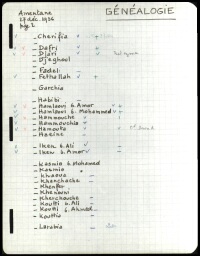 Amentane
27 déc. 1936
GÉNÉALOGIE
Cherifia
Dafri
Djari
Djeghoul
Fadel
Fethallah
Garchia
Habibi
Hamlaoui b. Amor
Hamlaoui b. Mohammed
Hammouche
Hammouchia
Hamouta
Hacine
Iken b. Ali
Iken b. Amor
Kasmia b. Mohamed
Kasmia
Khaoua
Khenchache
Khenfer
Khenouni
Kherchouche
Koutti b. Ali
Koutti b. Ahmed
Kouttia
Larabia